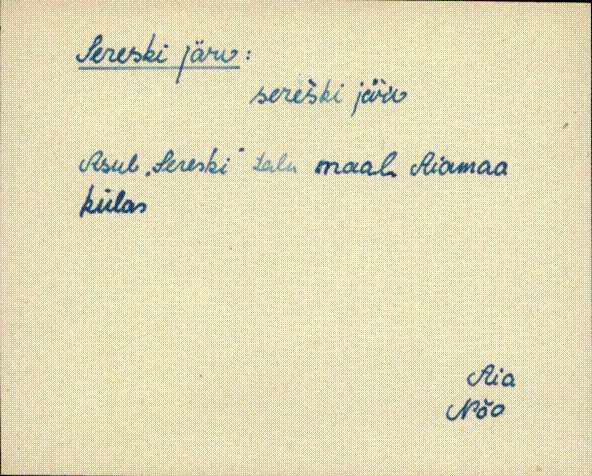 Sereski järv:
sereški järv
Asub "Sereski" talu maal Aiamaa
külas
Aia
Nõo